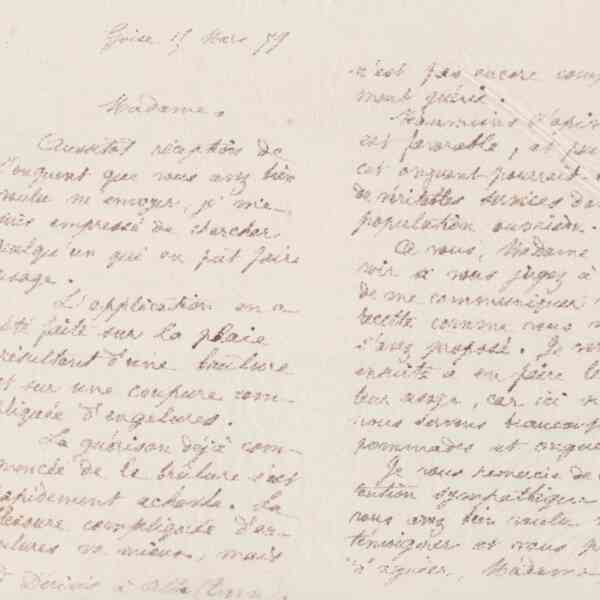 Guise 17 Mars 79
Madame,
Aussitôt réception de
l'onguent que vous avez bien
voulu m'envoyer, je me
suis empressé de chercher
quelqu'un qui en pût faire
usage.
L'application en a
été faite sur la plaie
résultant d'une brûlure
et sur une coupure com-
pliquée d'engelures.
La guérison déjà com-
mencée de la brûlure s'est
rapidement achevée. La
compliquée d'en-
gelures va mieux, mais
n'est pas encore
ment guérie.
Néanmoins l'opin
est favorable, et
cet onguent pourrait
de véritables services da
population ouvrière.
Ce vous, Madame
voir si vous jugez à
de me communiquer
recette comme vous
l'avez proposé. Je
ensuite à en faire
leur usage, car ici n
nous servons beaucoup
pommades et ongue
Je vous remercie de
tention sympathique
vous avez bien voulu
témoigner et vous p
d'agréer, Madame,